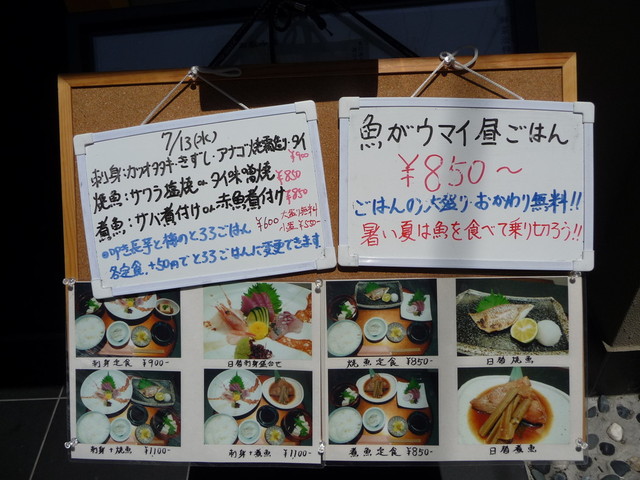 7/13(水)
刺身:カツオタタキ・きずし・アナゴ焼霜造り・タイ ¥900
焼魚:サワラ塩焼 or タイ味噌焼 ¥850
煮魚:サバ煮付け or 赤魚煮付け ¥850
¥600 大盛り無料
叩き長芋と梅のとろろごはん
各定食、+50円でとろろごはんに変更できます
魚がウマイ昼ごはん
¥850〜
ごはんの大盛り・おかわり無料!!
暑い夏は魚を食べて乗り切ろう!!
刺身定食 ¥900-
日替刺身盛合せ
焼魚定食 ¥850-
日替焼魚
刺身+焼魚 ¥1100-
刺身+煮魚 ¥1100-
煮魚定食 ¥850-
日替煮魚